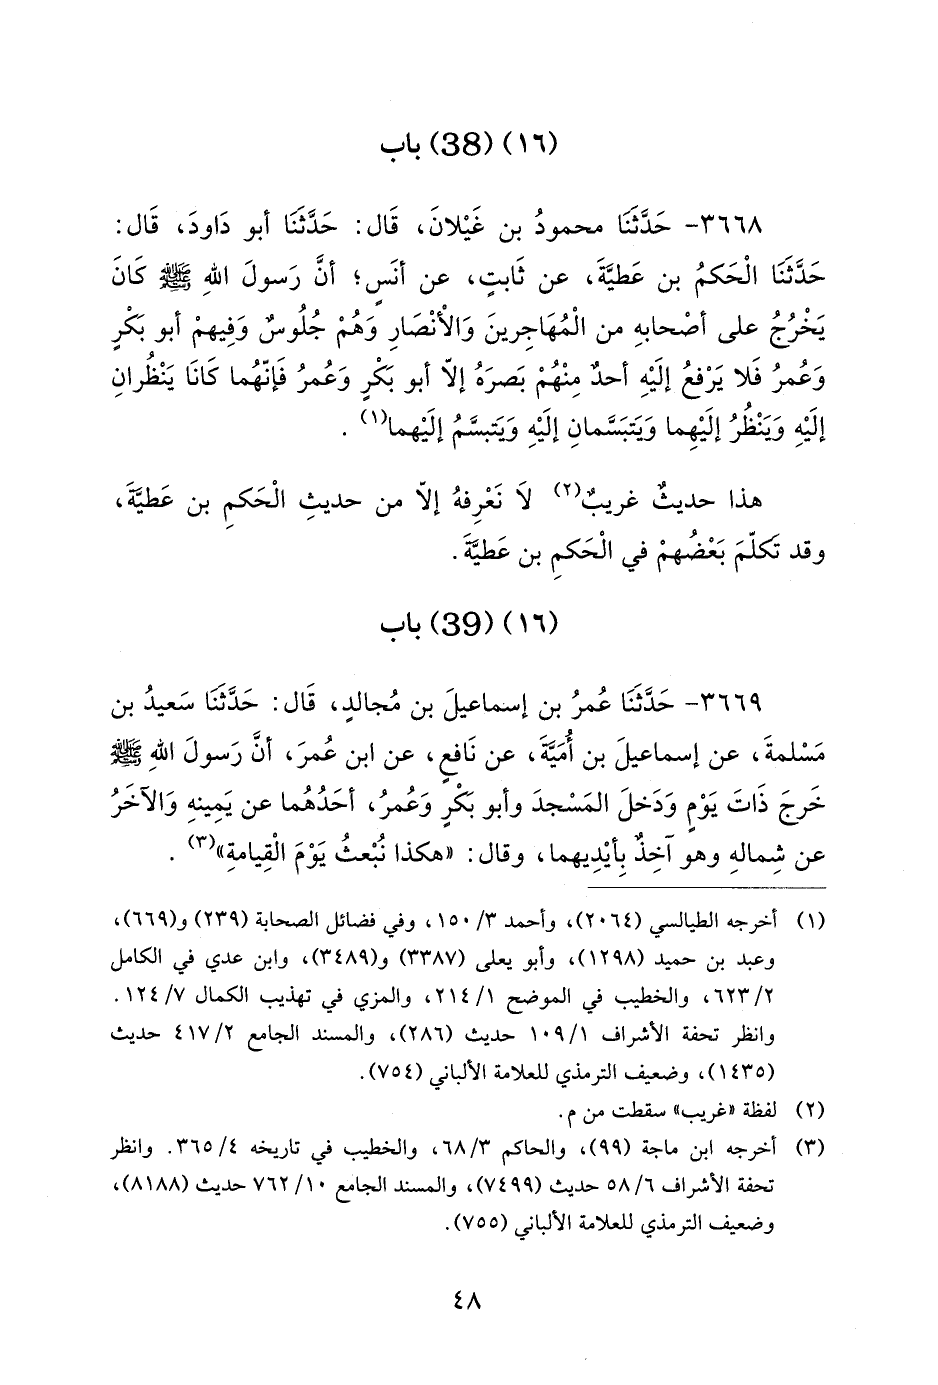 (١٦) (38) باب
٣٦٦٨- حَدَّثَنَا محمودُ بن غَيْلانَ، قَال: حَدَّثَنَا أبو دَاودَ، قَال:
حَدَّثَنَا الْحَكمُ بن عَطيَّةَ، عن ثَابتٍ، عن أنَسٍ؛ أنَّ رَسولَ اللهِ ﷺ كَانَ
يَخْرُجُ على أصْحابهِ من الْمُهَاجرينَ وَالْأنْصَارِ وَهُمْ جُلُوسٌ وَفِيهمْ أبو بَكْرٍ
وَعُمرُ فَلا يَرْفعُ إلَيْهِ أحدٌ مِنْهُمْ بَصرَهُ إلاّ أبو بَكْرٍ وَعُمرُ فَإنّهُما كَانَا يَنْظُرانِ
إلَيْهِ وَيَنْظُرُ إلَيْهِما وَيَتَبَسَّمانِ إلَيْهِ وَيَتبسَّمُ إلَيْهما(١) .
هذا حديثٌ غريبٌ(٢) لَا نَعْرِفهُ إلاّ من حديثِ الْحَكمِ بن عَطيَّةَ،
وقد تَكلّمَ بَعْضُهمْ في الْحَكمِ بن عَطيَّةَ.
(١٦) (39) باب
٣٦٦٩- حَدَّثَنَا عُمرُ بن إسماعيلَ بن مُجالدٍ، قَال: حَدَّثَنَا سَعيدُ بن
مَسْلمةَ، عن إسماعيلَ بن أُمَيَّةَ، عن نَافعٍ، عن ابن عُمرَ، أنَّ رَسولَ اللهِ ﷺ
خَرجَ ذَاتَ يَوْمٍ وَدَخلَ المَسْجدَ وأبو بَكْرٍ وَعُمرُ، أحَدُهُما عن يَمِينهِ وَالآخَرُ
عن شِمالهِ وهو آخِذٌ بِأيْدِيهما، وقال: «هكذا نُبْعثُ يَوْمَ الْقِيامةِ»(٣) .
(١) أخرجه الطيالسي (٢٠٦٤)، وأحمد ٣/ ١٥٠، وفي فضائل الصحابة (٢٣٩) و(٦٦٩)،
وعبد بن حميد (١٢٩٨)، وأبو يعلى (٣٣٨٧) و(٣٤٨٩)، وابن عدي في الكامل
٢/ ٦٢٣، والخطيب في الموضح ١/ ٢١٤، والمزي في تهذيب الكمال ٧/ ١٢٤.
وانظر تحفة الأشراف ١/ ١٠٩ حديث (٢٨٦)، والمسند الجامع ٢/ ٤١٧ حديث
(١٤٣٥)، وضعيف الترمذي للعلامة الألباني (٧٥٤).
(٢) لفظة «غريب» سقطت من م.
(٣) أخرجه ابن ماجة (٩٩)، والحاكم ٣/ ٦٨، والخطيب في تاريخه ٤/ ٣٦٥. وانظر
تحفة الأشراف ٦/ ٥٨ حديث (٧٤٩٩)، والمسند الجامع ١٠/ ٧٦٢ حديث (٨١٨٨)،
وضعيف الترمذي للعلامة الألباني (٧٥٥).
٤٨